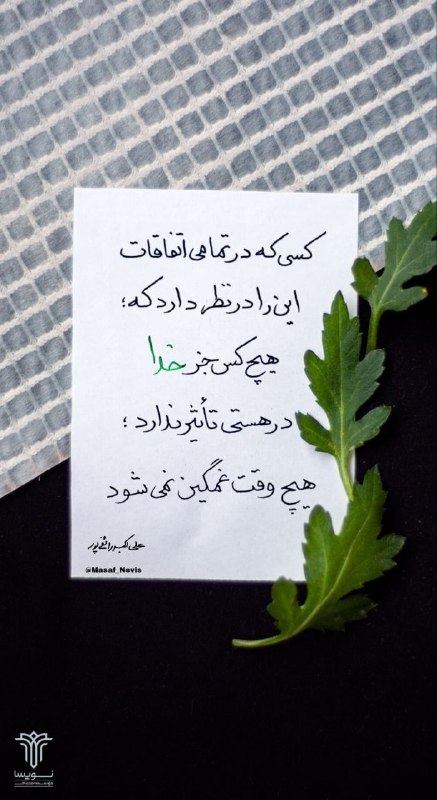 کسی که در تمامی اتفاقات
این را در نظر دارد که؛
هیچ کس جز خدا
در هستی تأثیر ندارد؛
هیچ وقت غمگین نمی شود
علی اکبر رائفی پور
@Masaf_Nevis
نویسا